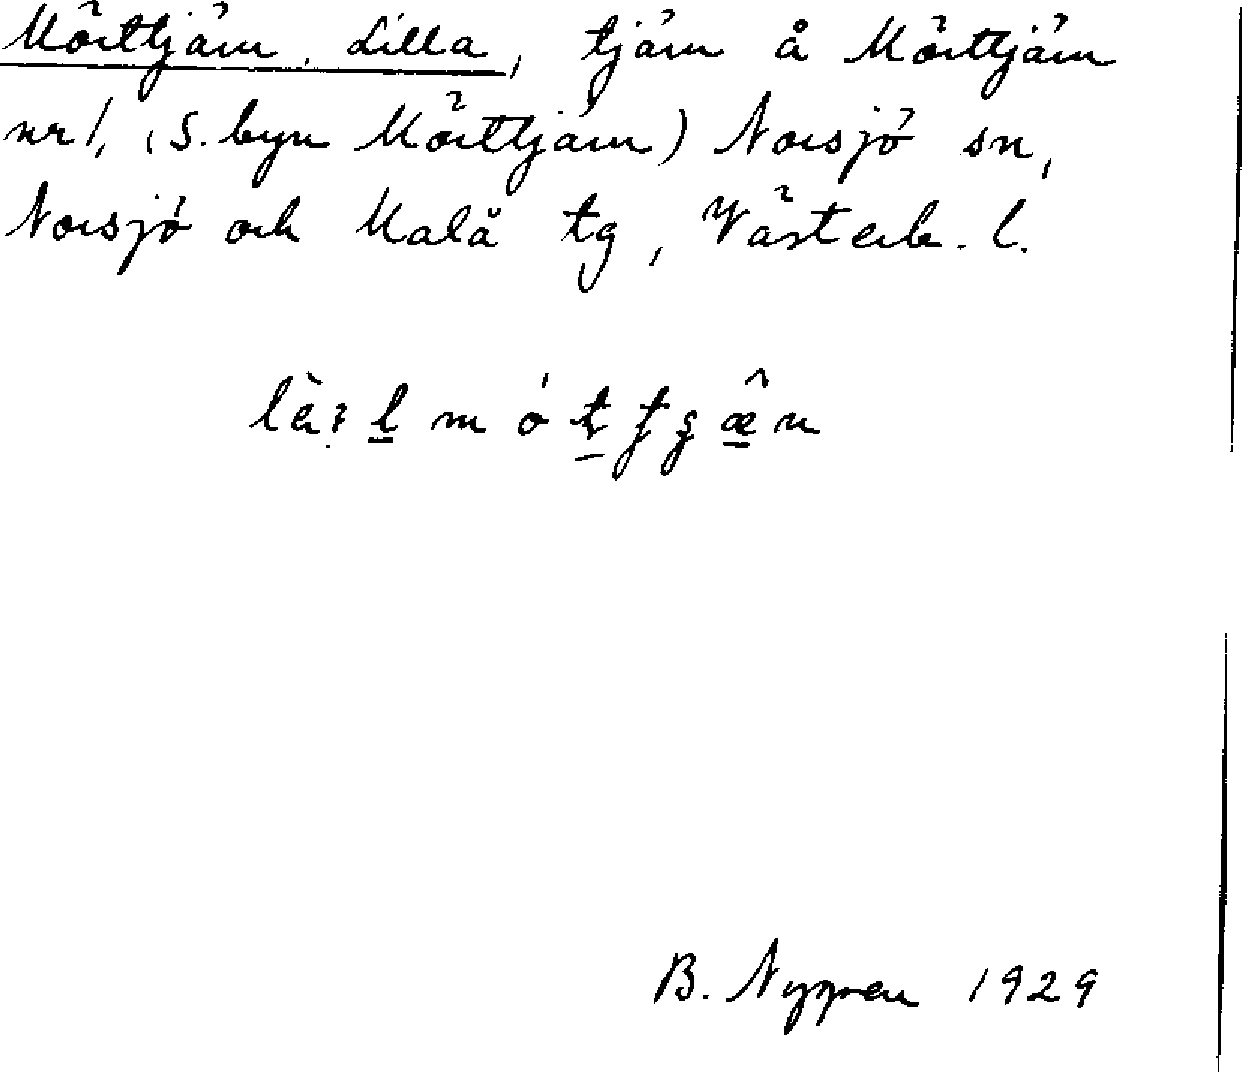 Mörttjärn, Lilla, tjärn å Mörttjärn
nr 1, (S. byn Mörttjärn) Norsjö sn,
Norsjö och Malå tg, Västerb. l.
B. Nygren 1929